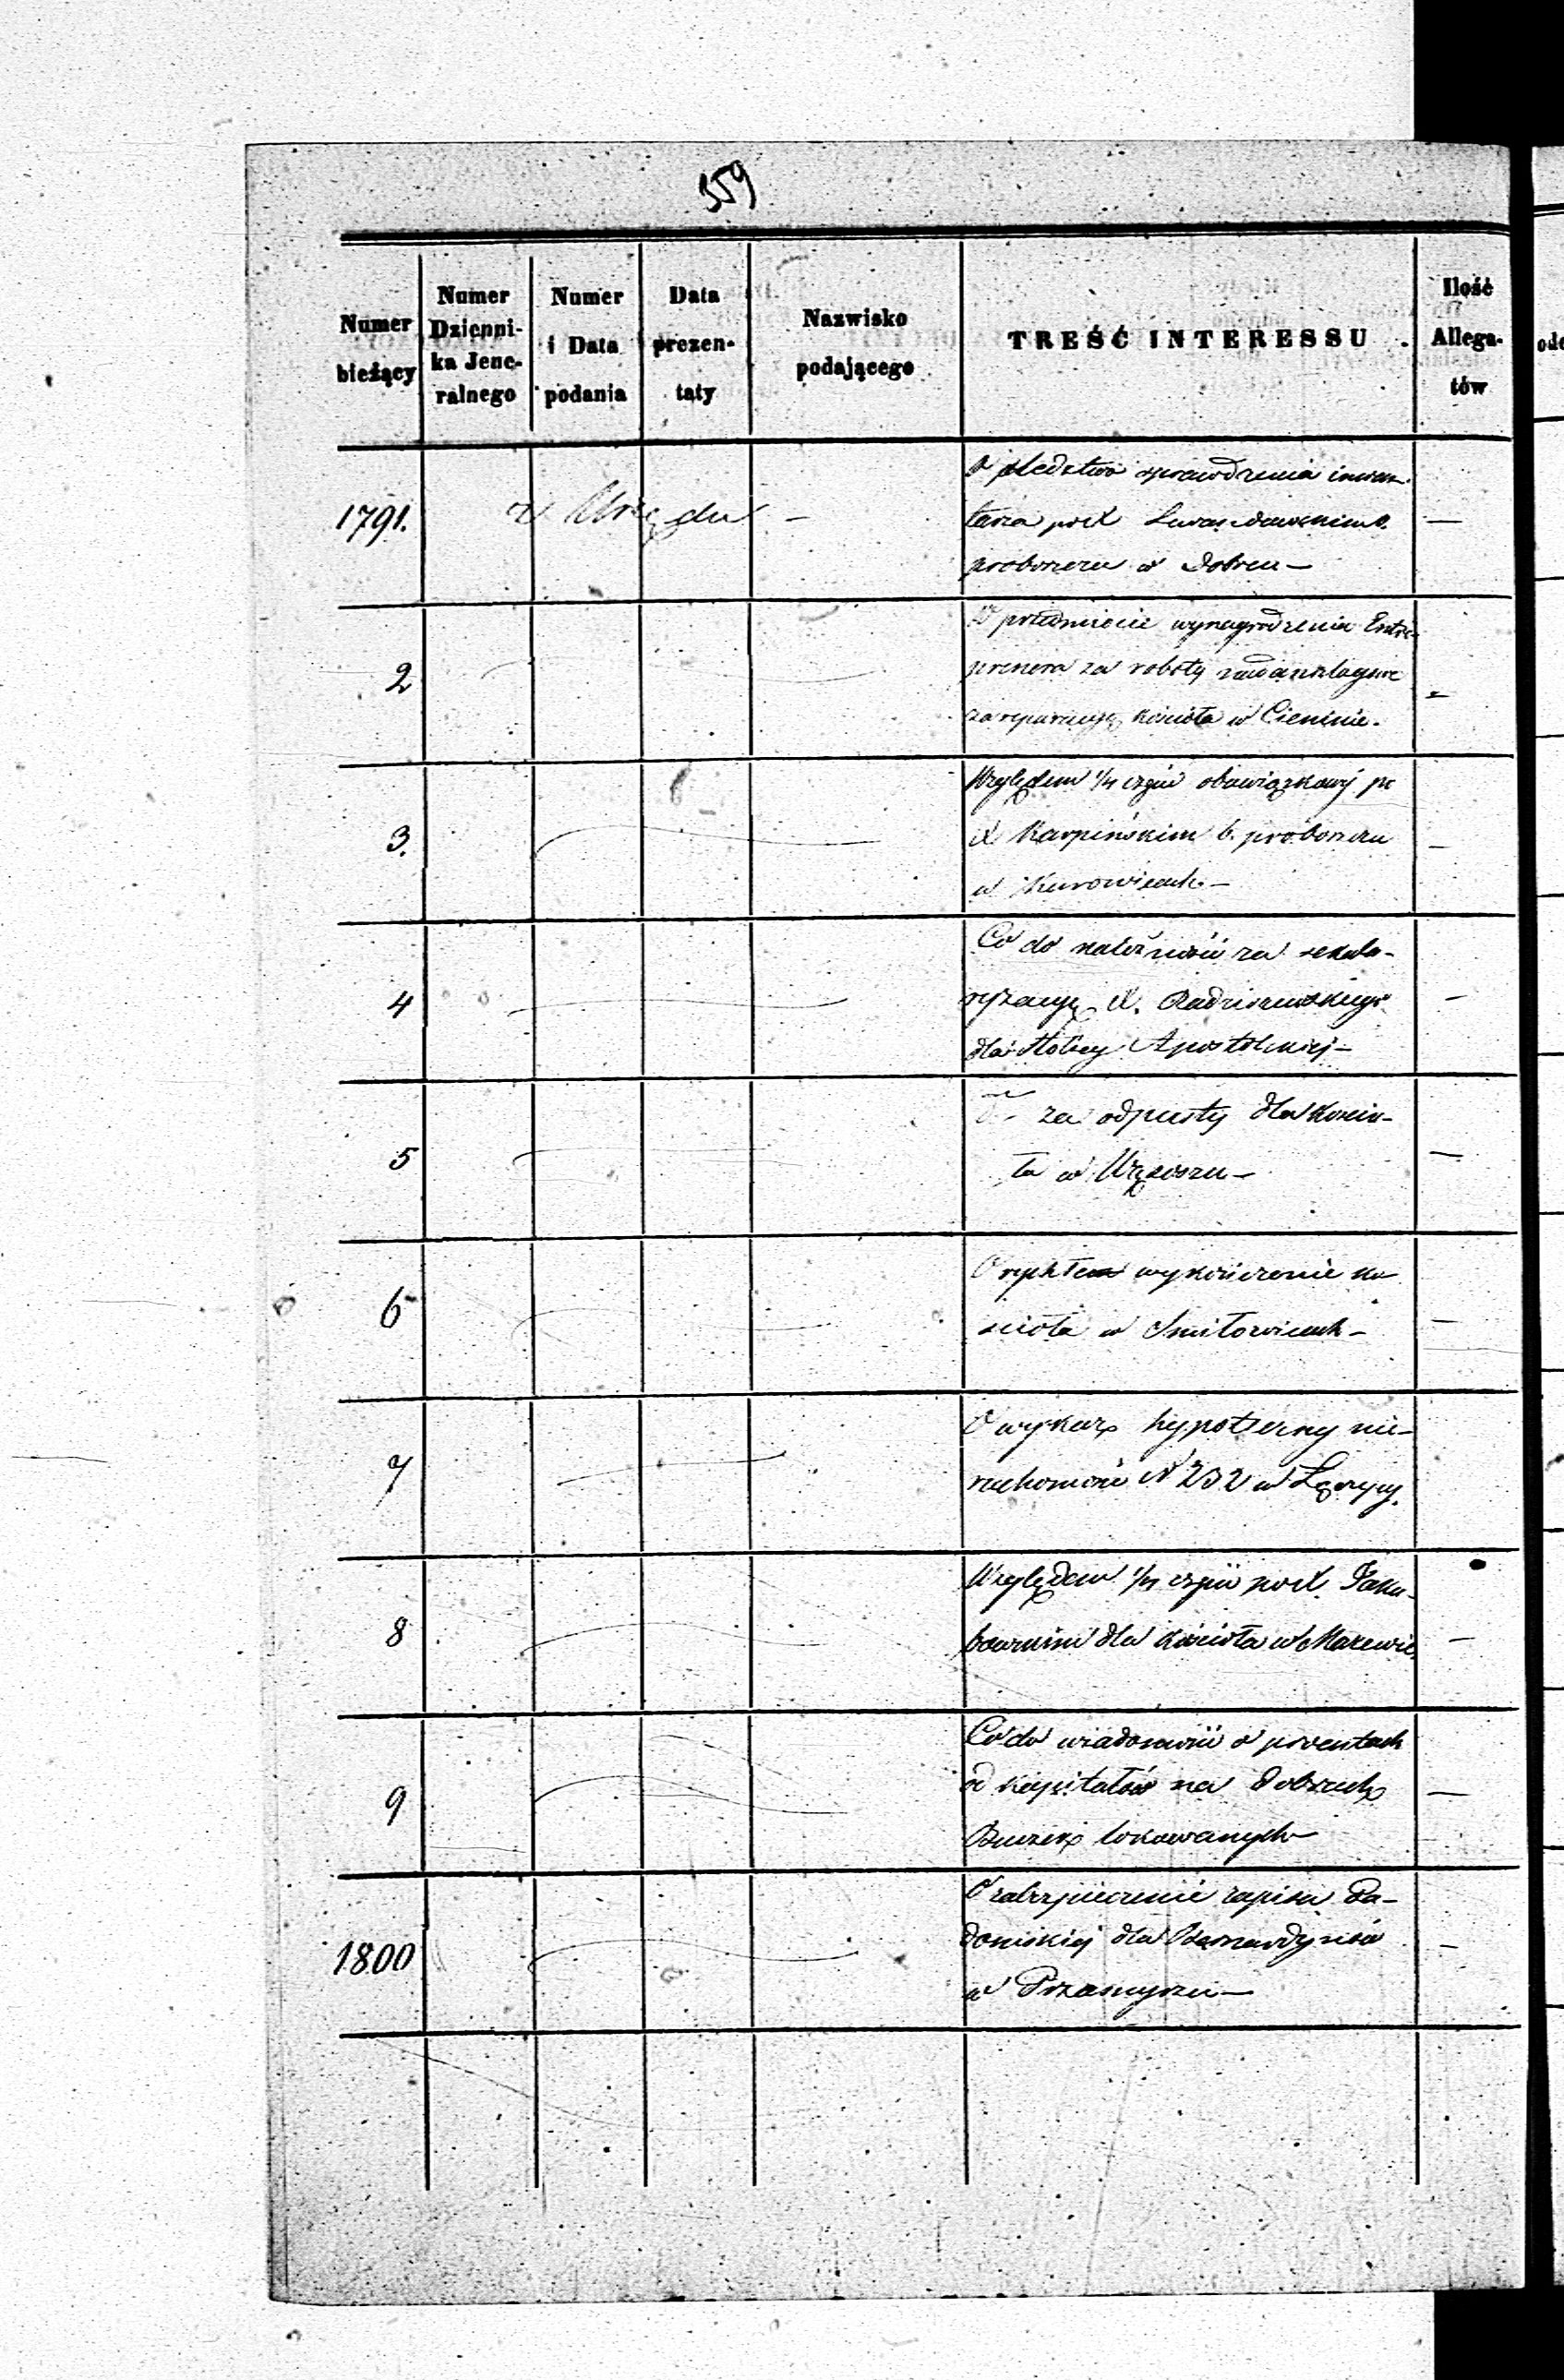 359
Numer bieżący
Numer Dzienni-ka Jene-ralnego
Numer i Data podania
Data prezen-taty
Nazwisko podającego
TREŚĆ INTERESSU.
Ilość Allega-tów
1791.
z Urzędu -
O śledztwo sprawdzenia inwen-
tarza po X
proboszczu w Dobrcu -
2
W przedmiocie wynagrodzenia Entre-
prenera za roboty nadanszlagowe
za reparacyę kościoła w Cieninie.
3.
Względem 1/4 części obowiązkowej po
X Karpińskim b. proboszczu
w Kurowicach. -
4
Co do należności za sekula-
ryzacyę X. Radziszewskiego
dla Stolicy Apostolskiej -
5
dto za odpusty dla Kościo-
ła w Wąsoszu -
6
O rychłe wykończenie ko
ścioła w Śmiłowicach -
7
O wykaz hypoteczny nie-
ruchomości N 232 w Łęczycy.
8
Względem 1/4 części po X. Jaku-
bowskim dla Kościoła w Mazewie
9
Co do wiadomości o procentach
od kapitałów na Dobrach
lokowanych
1800
O zabezpieczenie zapisu Ra-
dońskiej dla Bernardynów
w